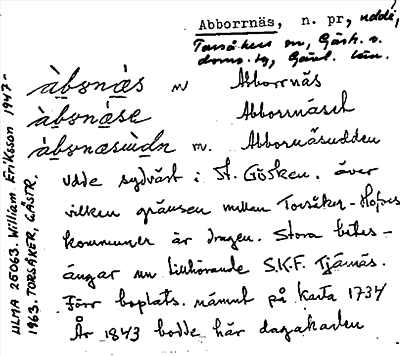 Abborrnäs, n. pr, udde,
Torsåkers sn, Gästr. ö.
doms. tg, Gävl. län.
àbɷnæs m Abborrnäs
àbɷnæse Abborrnäset
àbɷnæsùdn m. Abborrnäsudden
Udde sydväst i St. Gösken. över
vilken gränsen mellan Torsåker-Hofors
kommuner är dragen. Stora betes-
ängar nu tillhörande S.K.F. Tjärnäs.
Förr boplats. nämnt på karta 1734
År 1843 bodde här dagakarlen
ULMA 25063. William Eriksson 1947-
1963. TORSÅKER, GÄSTR.